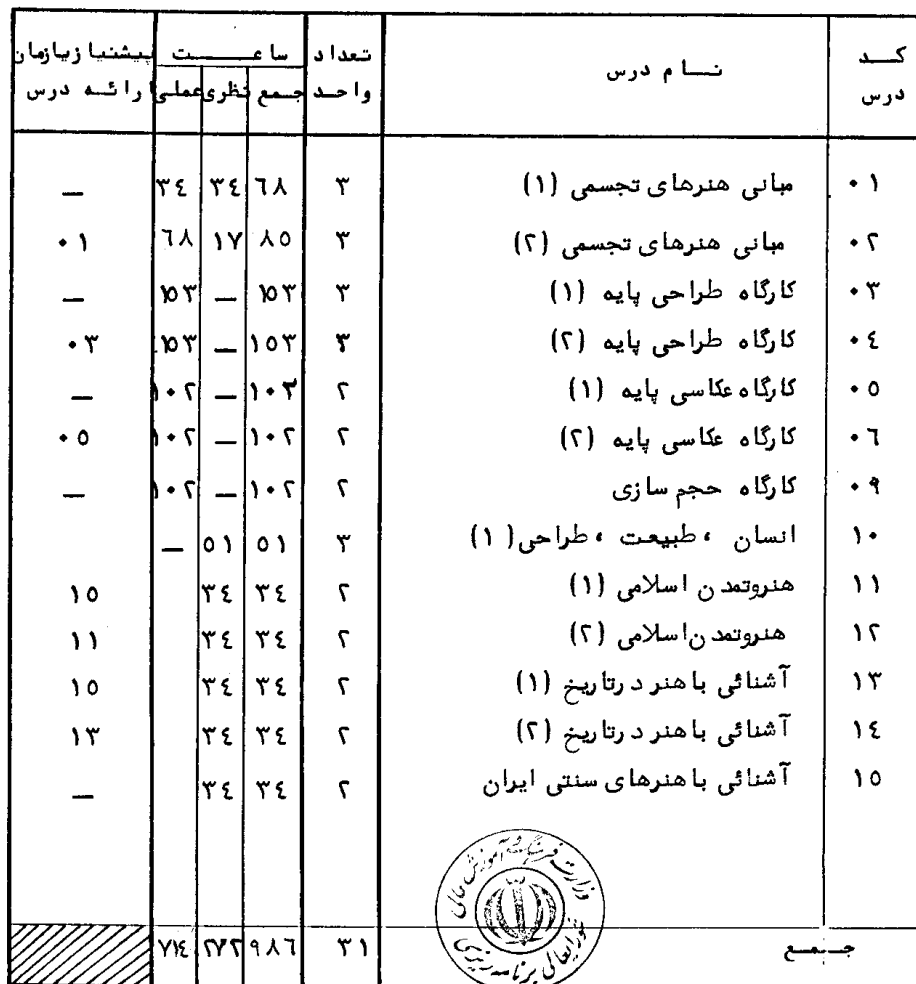 کد درس | نام درس | تعداد واحد | ساعت: جمع | نظری | عملی | پیشنیاز یا زمان ارائه درس
۰۱ | مبانی هنرهای تجسمی (۱) | ۳ | ۶۸ | ۳۴ | ۳۴ | —
۰۲ | مبانی هنرهای تجسمی (۲) | ۳ | ۸۵ | ۱۷ | ۶۸ | ۰۱
۰۳ | کارگاه طراحی پایه (۱) | ۳ | ۱۵۳ | — | ۱۵۳ | —
۰۴ | کارگاه طراحی پایه (۲) | ۳ | ۱۵۳ | — | ۱۵۳ | ۰۳
۰۵ | کارگاه عکاسی پایه (۱) | ۲ | ۱۰۲ | — | ۱۰۲ | —
۰۶ | کارگاه عکاسی پایه (۲) | ۲ | ۱۰۲ | — | ۱۰۲ | ۰۵
۰۹ | کارگاه حجم سازی | ۲ | ۱۰۲ | — | ۱۰۲ | —
۱۰ | انسان ، طبیعت ، طراحی (۱) | ۳ | ۵۱ | ۵۱ | —
۱۱ | هنروتمدن اسلامی (۱) | ۲ | ۳۴ | ۳۴ | ۱۵
۱۲ | هنروتمدن اسلامی (۲) | ۲ | ۳۴ | ۳۴ | ۱۱
۱۳ | آشنائی با هنر درتاریخ (۱) | ۲ | ۳۴ | ۳۴ | ۱۵
۱۴ | آشنائی با هنر درتاریخ (۲) | ۲ | ۳۴ | ۳۴ | ۱۳
۱۵ | آشنائی با هنرهای سنتی ایران | ۲ | ۳۴ | ۳۴ | —
وزارت فرهنگ و آموزش عالی
شورایعالی برنامه ریزی
جمع | ۳۱ | ۹۸۶ | ۲۷۲ | ۷۱۴